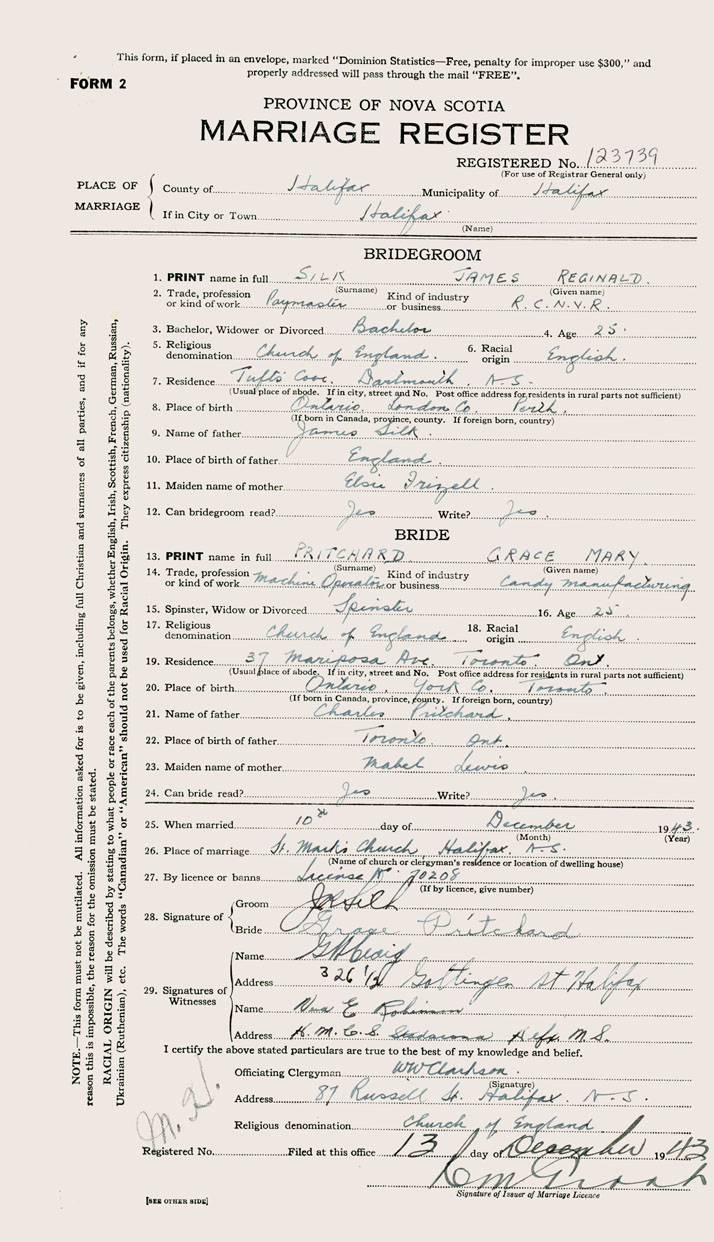 This form, if placed in an envelope, marked "Dominion Statistics—Free, penalty for improper use $300," and
properly addressed will pass through the mail "FREE".
FORM 2
PROVINCE OF NOVA SCOTIA
MARRIAGE REGISTER
REGISTERED No. 123739
(For use of Registrar General only)
PLACE OF MARRIAGE
County of Halifax Municipality of Halifax
If in City or Town Halifax
(Name)
BRIDEGROOM
1. PRINT name in full SILK JAMES REGINALD.
(Surname) (Given name)
2. Trade, profession or kind of work Paymaster Kind of industry or business R.C.N.V.R.
3. Bachelor, Widower or Divorced Bachelor 4. Age 25.
5. Religious denomination Church of England. 6. Racial origin English.
7. Residence Tufts Cove. Dartmouth. N.S.
(Usual place of abode. If in city, street and No. Post office address for residents in rural parts not sufficient)
8. Place of birth Ontario. London Co. Perth.
(If born in Canada, province, county. If foreign born, country)
9. Name of father James Silk.
10. Place of birth of father England
11. Maiden name of mother Elsie Frizell.
12. Can bridegroom read? Yes Write? Yes.
BRIDE
13. PRINT name in full PRITCHARD GRACE MARY.
(Surname) (Given name)
14. Trade, profession or kind of work Machine Operator Kind of industry or business Candy manufacturing
15. Spinster, Widow or Divorced Spinster 16. Age 25.
17. Religious denomination Church of England 18. Racial origin English.
19. Residence 37 Mariposa Ave. Toronto. Ont.
(Usual place of abode. If in city, street and No. Post office address for residents in rural parts not sufficient)
20. Place of birth Ontario. York Co. Toronto.
(If born in Canada, province, county. If foreign born, country)
21. Name of father Charles Pritchard.
22. Place of birth of father Toronto. Ont.
23. Maiden name of mother Mabel Lewis.
24. Can bride read? Yes Write? Yes.
25. When married 10th day of December 1943.
(Month) (Year)
26. Place of marriage St. Mark's Church, Halifax. N.S.
(Name of church or clergyman's residence or location of dwelling house)
27. By licence or banns License No. 70208
(If by licence, give number)
28. Signature of
Groom Silk
Bride Grace Pritchard
29. Signatures of Witnesses
Name Craig
Address 326 1/2 Gottingen St Halifax
Name E Robinson
Address H.M.C.S. Stadacona Hfx N.S.
I certify the above stated particulars are true to the best of my knowledge and belief.
Officiating Clergyman WW Clarkson.
(Signature)
Address 87 Russell St. Halifax. N.S.
Religious denomination Church of England
Registered No. Filed at this office 13 day of December 1943
Signature of Issuer of Marriage Licence
[SEE OTHER SIDE]
NOTE.—This form must not be mutilated. All information asked for is to be given, including full Christian and surnames of all parties, and if for any
reason this is impossible, the reason for the omission must be stated.
RACIAL ORIGIN will be described by stating to what people or race each of the parents belongs, whether English, Irish, Scottish, French, German, Russian,
Ukrainian (Ruthenian), etc. The words "Canadian" or "American" should not be used for Racial Origin. They express citizenship (nationality).